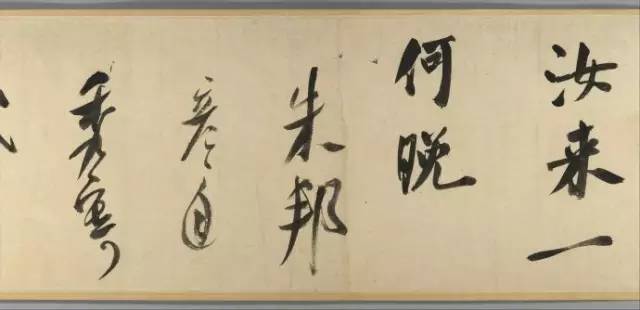 汝来一
何晚
朱邦
彦自
秀寄